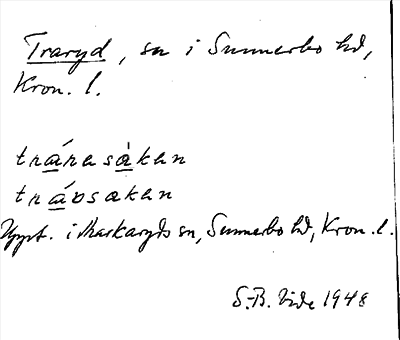 Traryd, sn i Sunnerbo hd,
Kron. l.
tráresàken
trábsaken
Uppt. i Markaryds sn, Sunnerbo hd, Kron. l.
S.B. Vide 1948